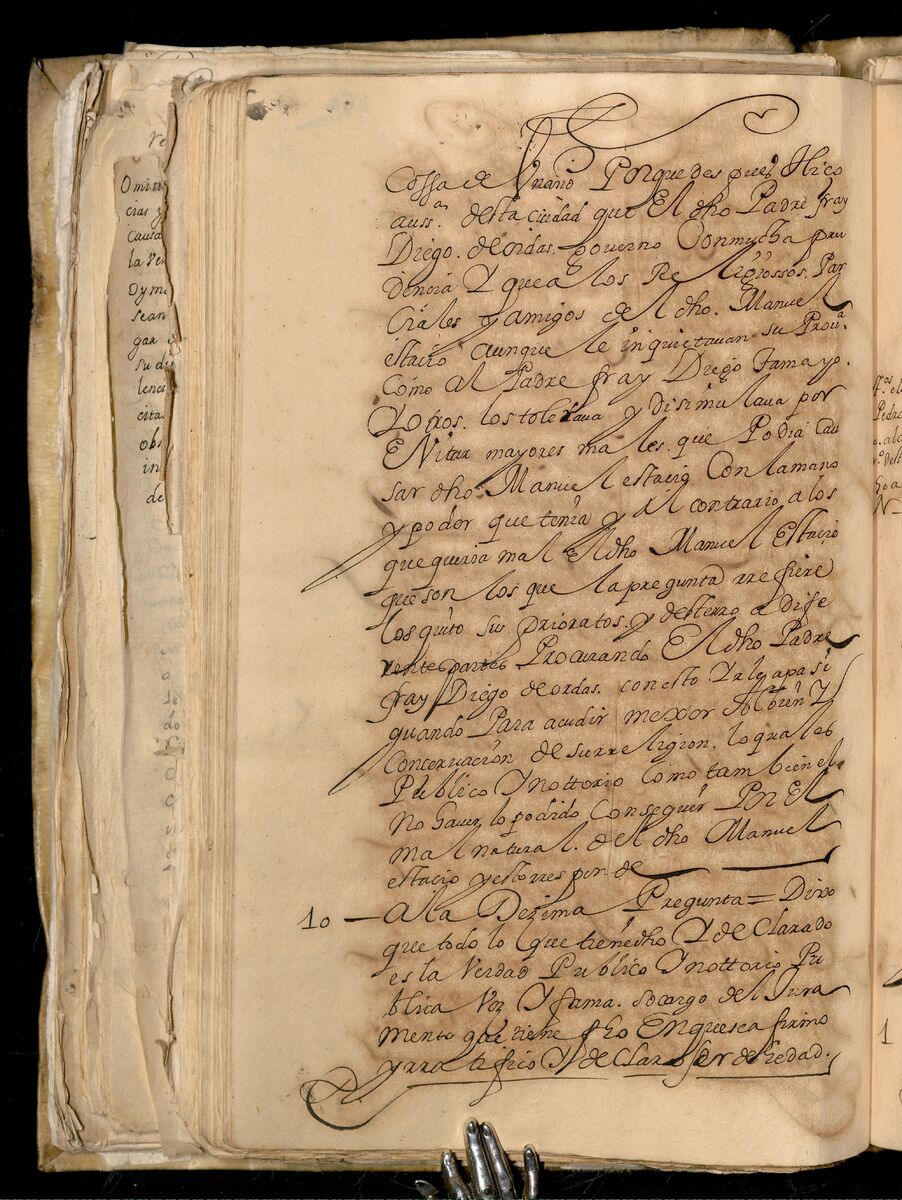 Cossa de Vn año Porque despues Hico
auss.n desta ciudad que El dho Padre fray
Diego. de ordas. governo Con mucha pru
dencia Y que a los Religiossos. Par
Ciales y amigos del dho. Manuel
estacio aunque le inquietauan su Prou.a
Como al Padre fray Diego Tamayo.
Y otros. los toleraua y disimulaua por
EVitar mayores males. que Podia Cau
sar dho. Manuel estacio Con la mano
y poder que tenia y al contrario a los
que queria mal El dho Manuel Estacio
que son los que la pregunta rrefiere
los quito sus prioratos. y desterro a dife
rentes partes Procurando El dho Padre
fray Diego de ordas. con esto Y
quando Para acudir mexor Al Y
Concervacion de su rreligion. lo qual es
Publico Y nottorio como tambien el
No haver lo podido Conseguir Por El
mal natural. del dho Manuel
estacio y esto rresponde
10 — A la Dezima Pregunta = Dixo
que todo lo que tiene dho Y de Clarado
es la Verdad Publico Y nottorio Pu
blica Voz Y fama. socargo del Jura
mento que tiene fho En que se a firmo
y rratifico Y de Claro ser de hedad.
Omiti
cias y
Causa
la Ve
Oyme
sean
gar
su di
lenc
cita
obs
in
de
Pedro
1